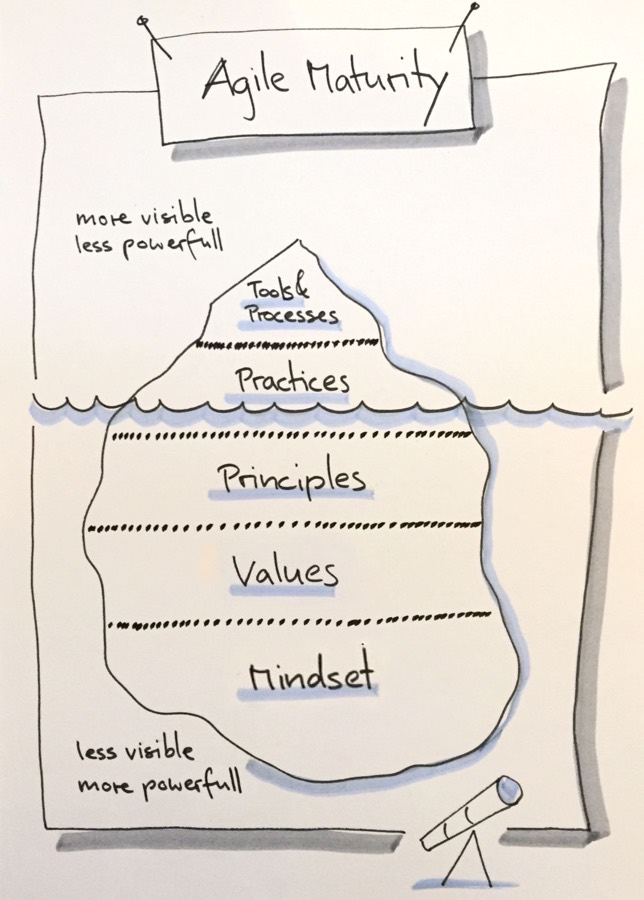 Agile Maturity
more visible
less powerfull
Tools &
Processes
Practices
Principles
Values
Mindset
less visible
more powerfull